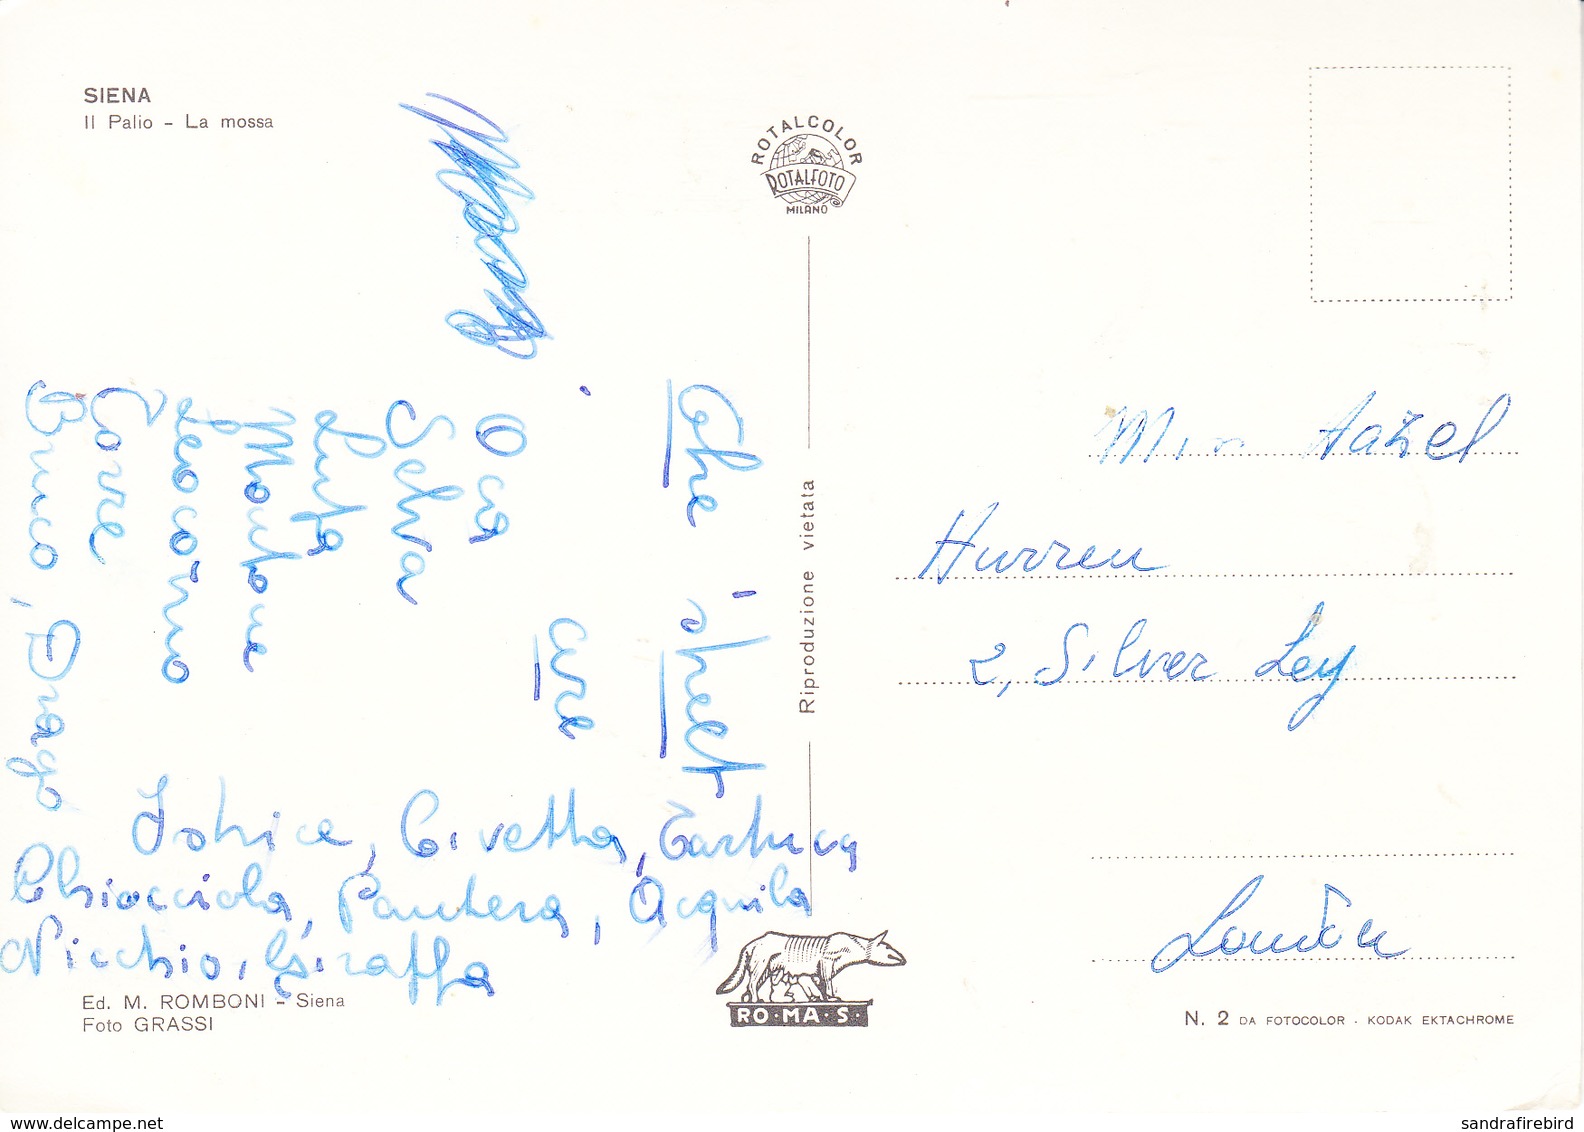 SIENA
Il Palio - La mossa
ROTALCOLOR
ROTALFOTO
MILANO
The street
are
Oca
Selva
Lupa
Montone
Leocorno
Torre
Bruco, Drago
Istrice, Civetta, Tartuca
Chiocciola, Pantera, Acquila
Nicchio, Giraffa
Ed. M. ROMBONI - Siena
Foto GRASSI
Riproduzione vietata
RO·MA·S·
Hurren
2, Silver Ley
London
N. 2 DA FOTOCOLOR - KODAK EKTACHROME
www.delcampe.net
sandrafirebird